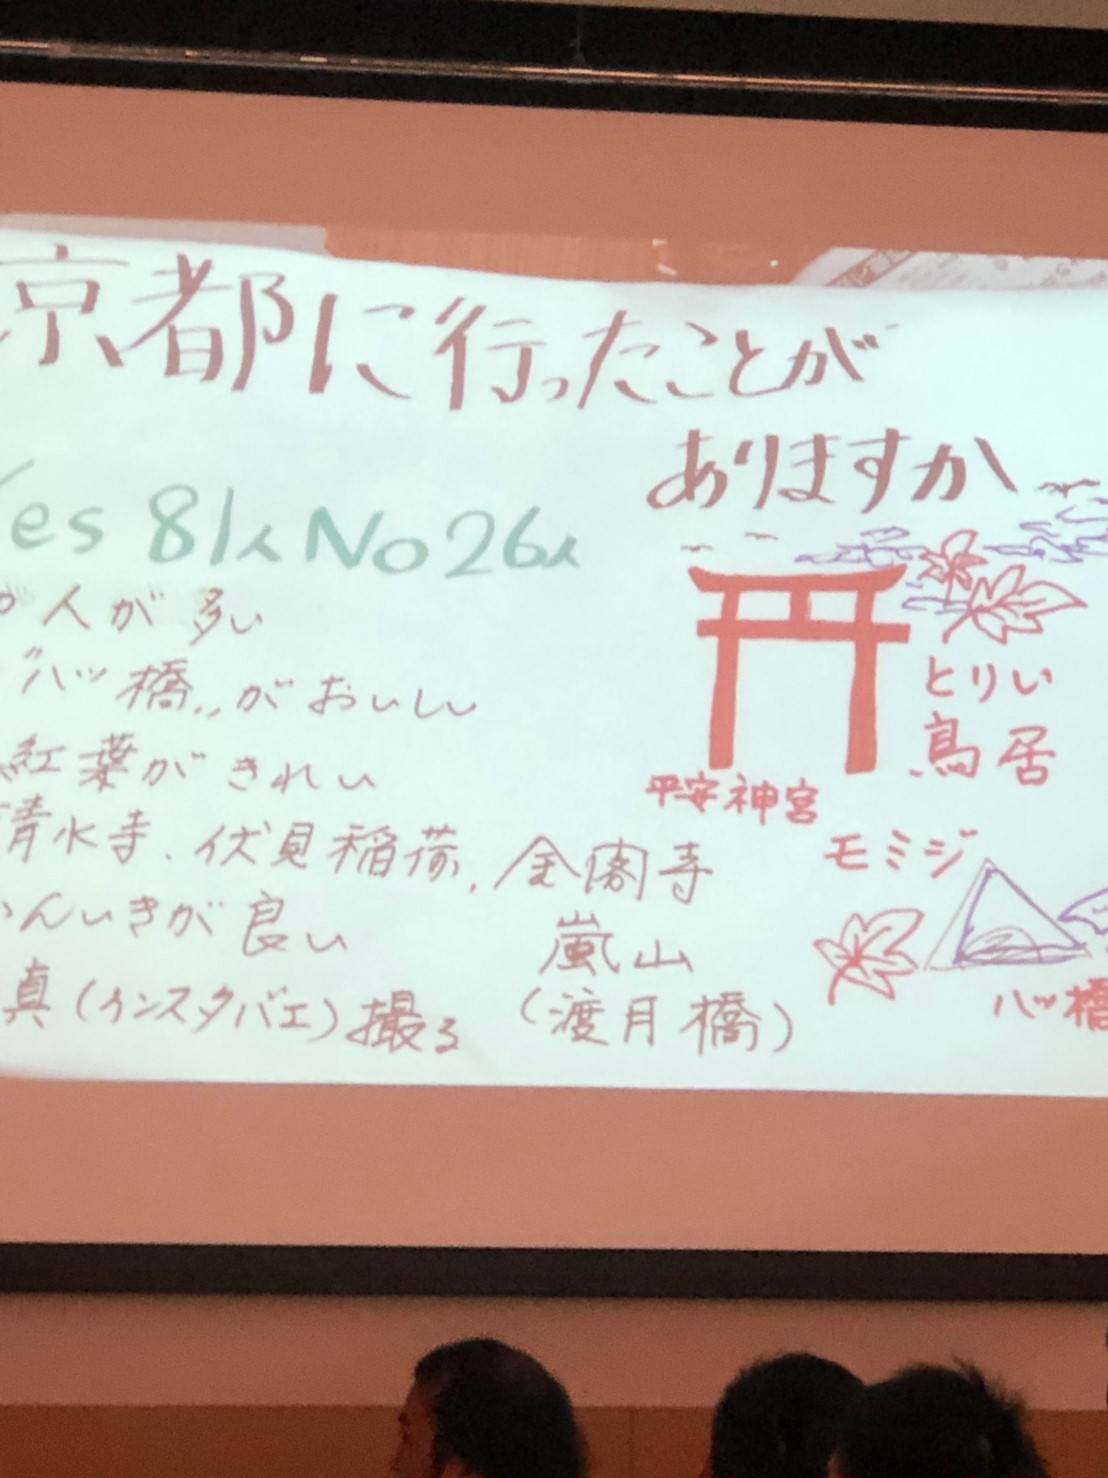 京都に行ったことが
ありますか
Yes 81人 No 26人
人が多い
"八ッ橋"がおいしい
紅葉がきれい
清水寺、伏見稲荷、金閣寺
んいきが良い
嵐山
真(インスタバエ)撮る
(渡月橋)
とりい
鳥居
平安神宮
モミジ
八ッ橋